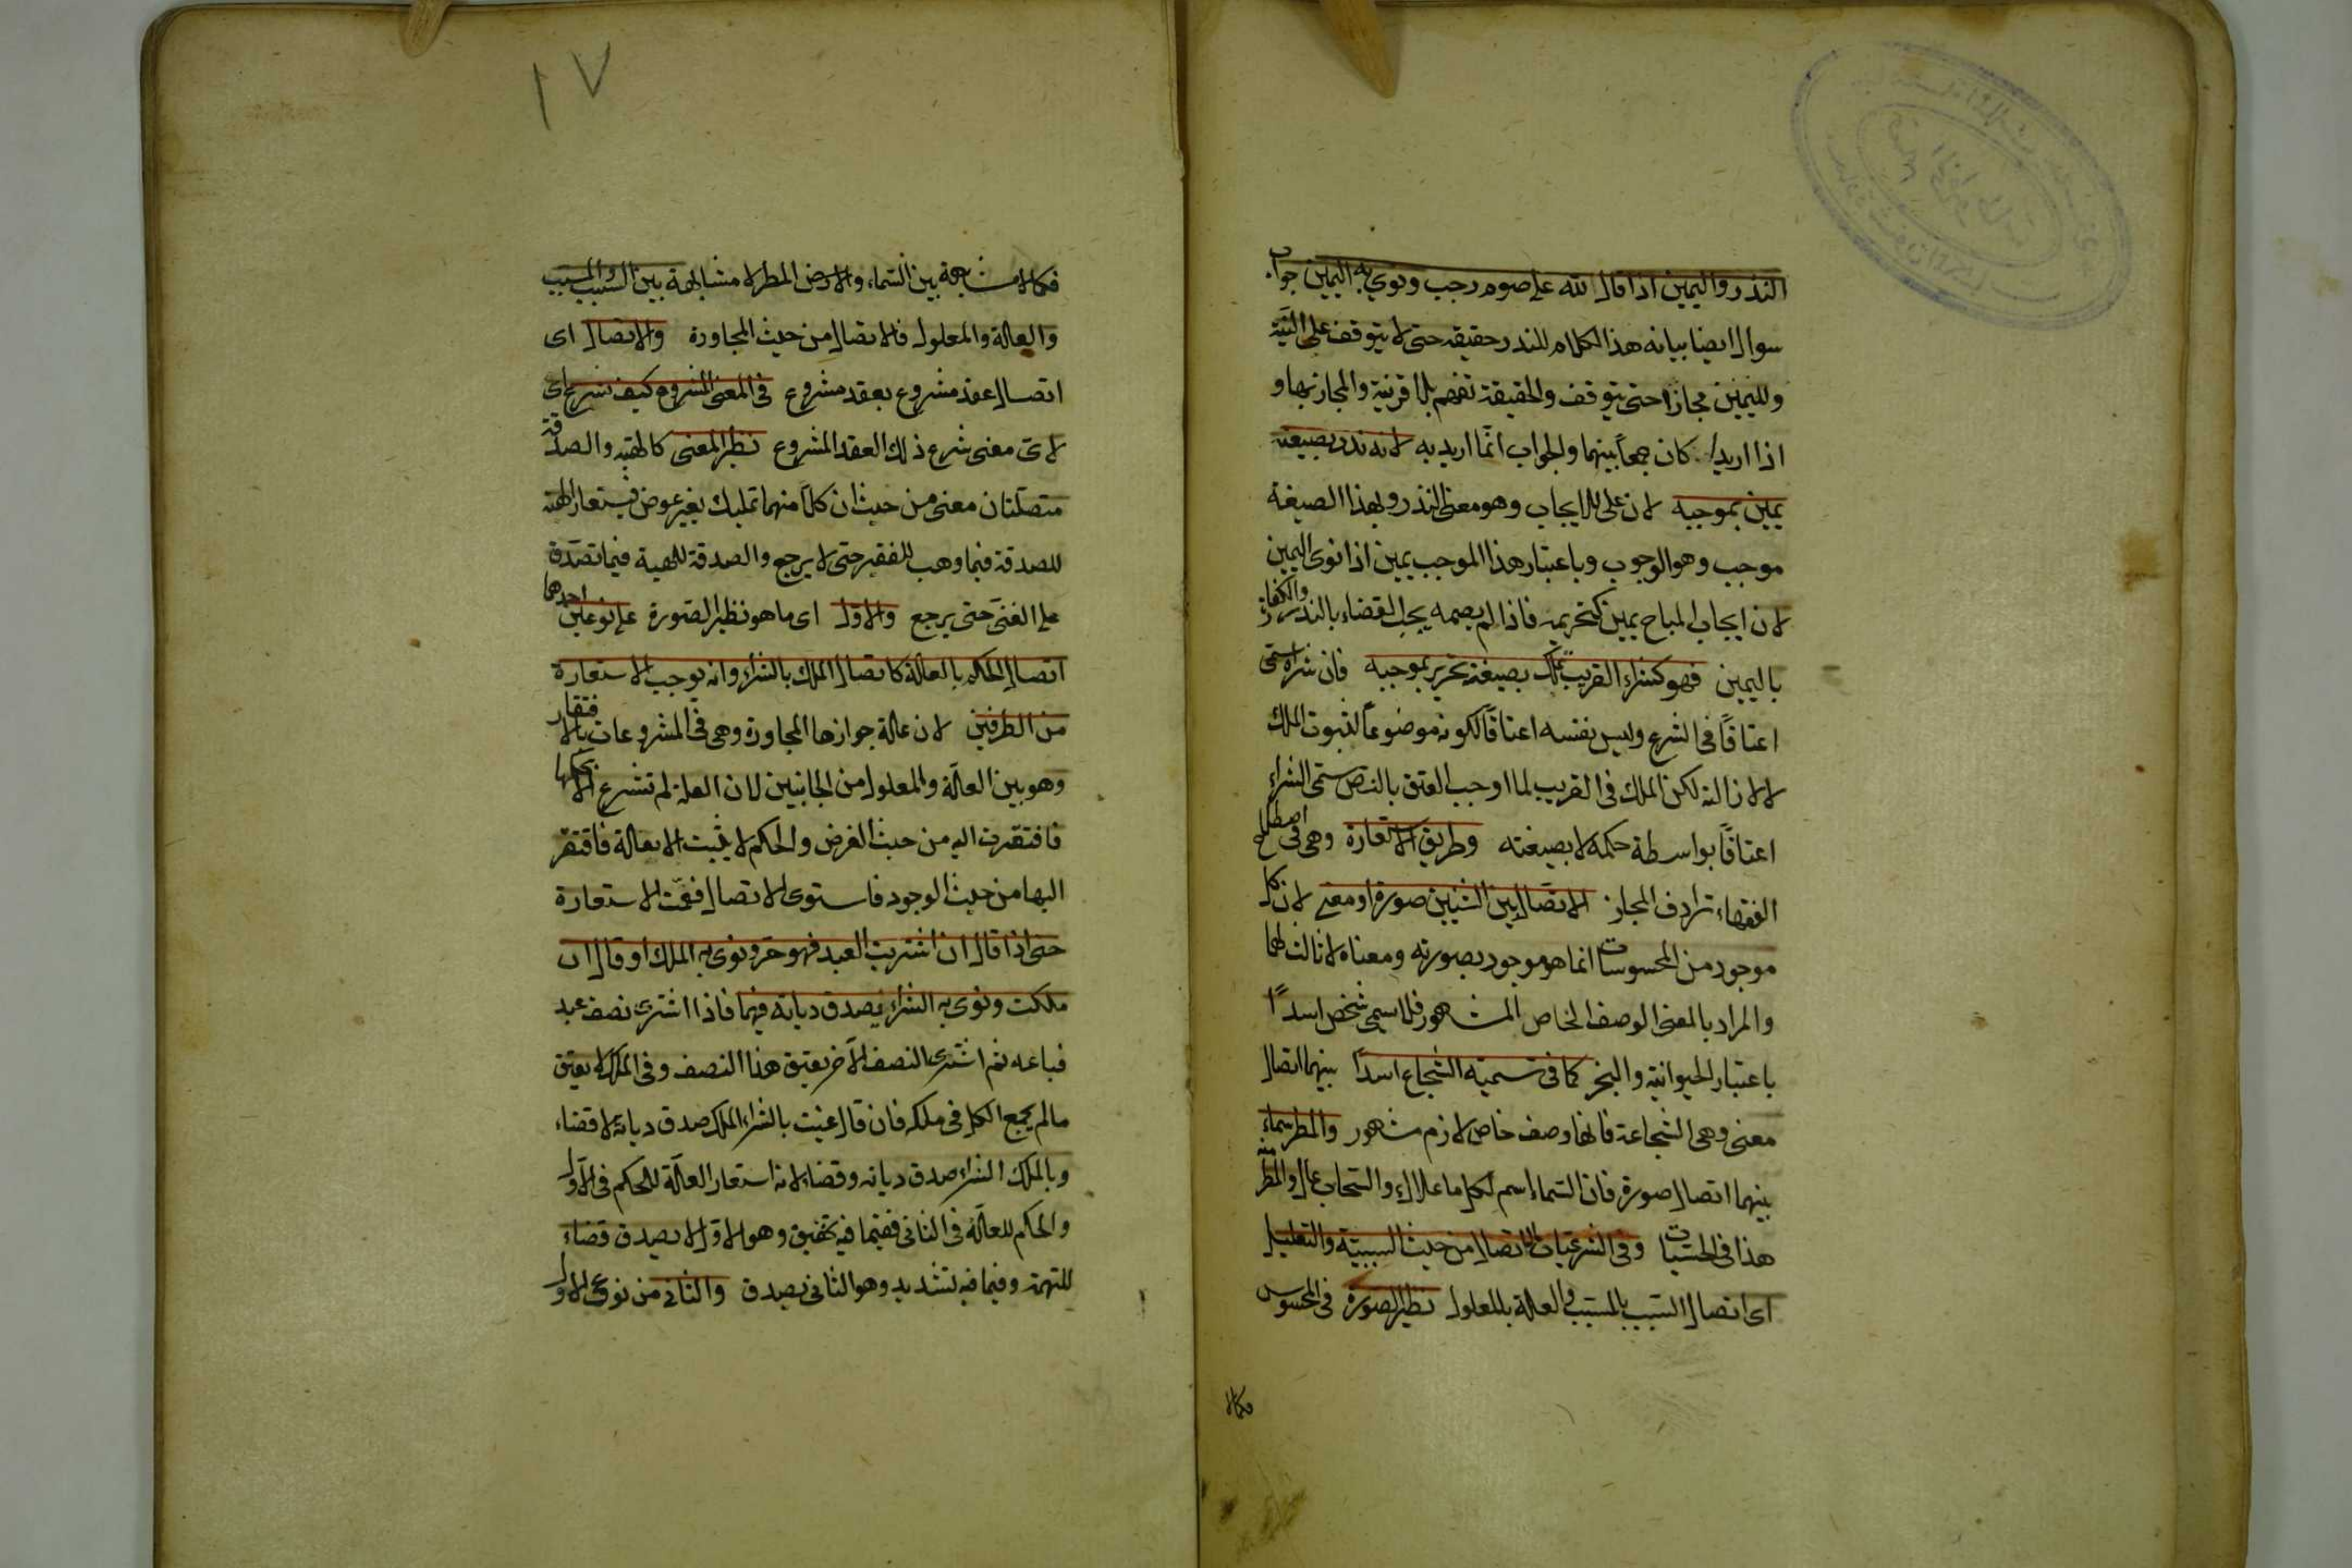 النذر واليمين اذا قال لله علي صوم رجب ونوي به اليمين جواب
سوال ايضا بيانه هذا الكلام للنذر حقيقة حتى لا يتوقف على النية
ولليمين مجازا حتى يتوقف والحقيقة تفهم بلا قرينة والمجاز بها و
اذا اريدا كان جمعا بينهما والجواب انما اريد به لانه نذر بصيغته
يمين بموجبه لان على للايجاب وهو معنى النذر ولهذا الصيغة
موجب وهو الوجوب وباعتبار هذا الموجب يمين اذا نوى اليمين
لان ايجاب المباح يمين كتحريمه فاذا لم يصمه يجب القضاء بالنذر والكفارة
باليمين فهو كشراء القريب تملك بصيغته تحرير بموجبه فان شراه سمى
اعتاقا في الشرع وليس نفسه اعتاقا لكونه موضوعا لثبوت الملك
لا لازالته لكن الملك في القريب لما اوجب العتق بالنص سمى الشراء
اعتاقا بواسطة حكمه لا بصيغته وطريق الاستعارة وهى في اصطلاح
الفقهاء ترادف المجاز الاتصال بين الشيئين صورة او معنى لان كل
موجود من المحسوسات انما هو موجود بصورته ومعناه لا ثالث لهما
والمراد بالمعنى الوصف الخاص المشهور فلا سمى شخص اسدا
باعتبار الحيوانية والبخر كما فى تسمية الشجاع اسدا بينهما اتصال
معنى وهى الشجاعة فانها وصف خاص لازم مشهور والمطر سماء
بينهما اتصال صورة فان السماء اسم لكل ما علاك والسحاب عال والمطر منه
هذا فى الحسيات وفى الشرعيات الاتصال من حيث السببية والتعليل
اى اتصال السبب بالمسبب والعلة بالمعلول نظير الصورة فى المحسوس
فكما لا
١٧
فكما لا مشابهة بين السماء والارض المطر لا مشابهة بين السبب والمسبب
والعلة والمعلول فالاتصال من حيث المجاورة والاتصال اى
اتصال عقد مشروع بعقد مشروع فى المعنى المشروع كيف شرع اى
لاى معنى شرع ذلك العقد المشروع نظير المعنى كالهبة والصدقة
متصلتان معنى من حيث ان كلا منهما تمليك بغير عوض فيستعار الهبة
للصدقة فيما وهب للفقير حتى لا يرجع والصدقة للهبة فيما تصدق
على الغنى حتى يرجع والاول اى ما هو نظير الصورة على نوعين احدهما
اتصال الحكم بالعلة كاتصال الملك بالشراء وانه يوجب الاستعارة
من الطرفين لان علة جوازها المجاورة وهى فى المشروعات بالافتقار
وهو بين العلة والمعلول من الجانبين لان العلة لم تشرع الا لحكمها
فافتقرت اليه من حيث الغرض والحكم لا يثبت الا بعلة فافتقر
اليها من حيث الوجود فاستوى الاتصال فعمت الاستعارة
حتى اذا قال ان اشتريت العبد فهو حر ونوى به الملك او قال ان
ملكت ونوى به الشراء يصدق ديانة فيهما فاذا اشترى نصف عبد
فباعه ثم اشترى النصف الآخر يعتق هذا النصف وفى الملك لا يعتق
ما لم يجمع الكل فى ملكه فان قال عنيت بالشراء الملك صدق ديانة لا قضاء
وبالملك الشراء صدق ديانة وقضاء لانه استعار العلة للحكم فى الاول
والحكم للعلة فى الثانى ففيما فيه تخفيف وهو الاول لا يصدق قضاء
للتهمة وفيما فيه تشديد وهو الثانى يصدق والثانى من نوعى الاول